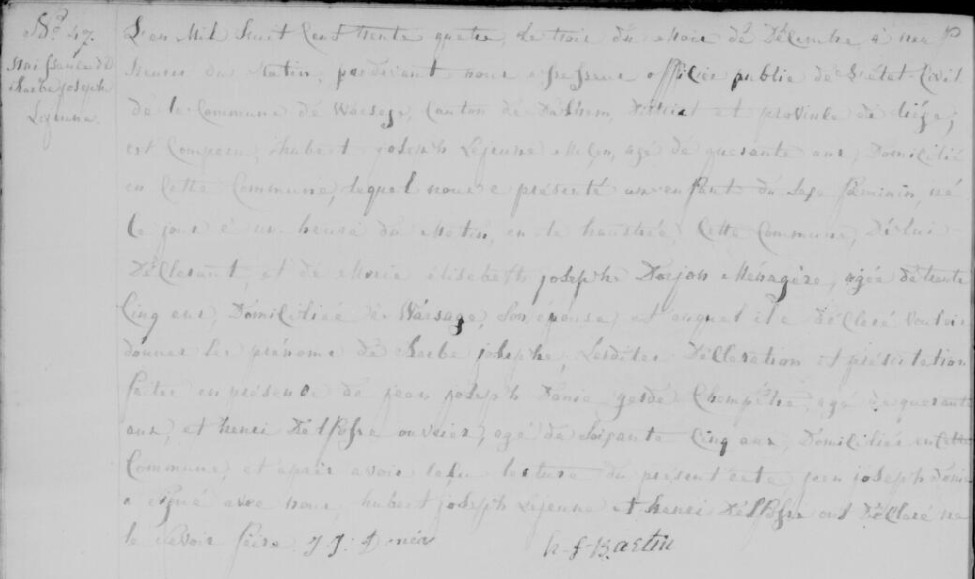 N.o 47.
Naissance de
Barbe joseph
Lejeune.
L'an Mil huit Cent trente quatre, le trois du Mois de Décembre à neuf
heures du Matin, pardevant nous officier public de l'état Civil
de la Commune de Warsage, Canton de Dalhem, District et province de liége,
est Comparu, hubert joseph Lejeune Maçon, agé de quarante ans, Domicilié
en Cette Commune, lequel nous a présenté un enfant du Sexe féminin, né
le jour à un heure du Matin, en la Cette Commune, De lui
Déclarant, et de Marie élisabeth josephe Dorjon Ménagère, agée de trente
Cinq ans, Domiciliée à Warsage, Son épouse, et auquel il a Déclaré vouloir
donner les prénoms de Barbe josephe, Lesdites Déclaration et présentation
faites en présence de jean joseph garde Champêtre, agé de quarante
ans, et henri ouvrier, agé de Soixante Cinq ans, Domiciliés en Cette
Commune, et après avoir lecture du présent acte jean joseph
a signé avec nous, hubert joseph Lejeune et henri ont Déclaré ne
le Savoir faire